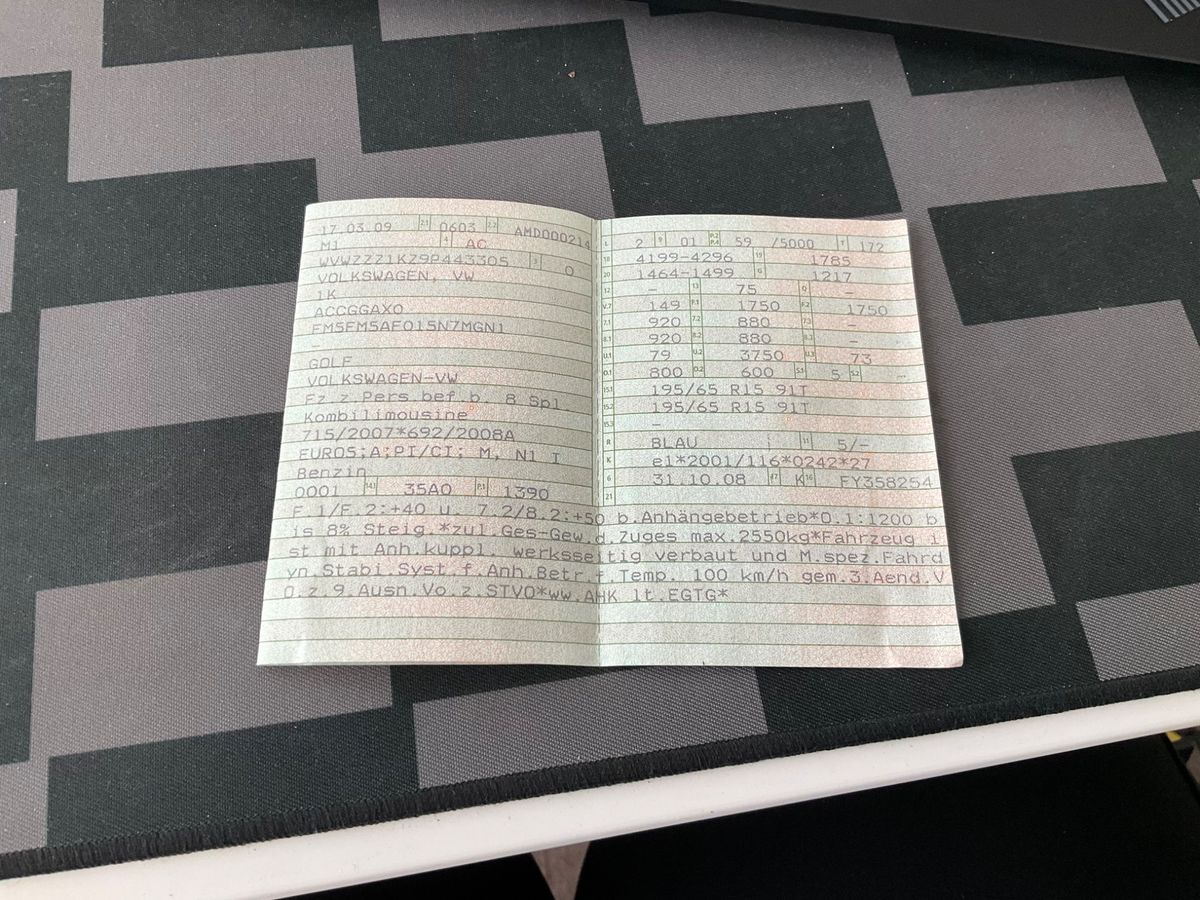 17.03.09 2.1 0603 2.2 AMD000214
M1 4 AC
WVWZZZ1KZ9P443305 3 0
VOLKSWAGEN, VW
1K
ACCGGAX0
FM5FM5AF015N7MGN1
-
GOLF
VOLKSWAGEN-VW
Fz.z.Pers.bef.b. 8 Spl.
Kombilimousine
715/2007*692/2008A
EURO5;A;PI/CI; M, N1 I
Benzin
0001 14.1 35A0 P.1 1390
L 2 9 01 P.2 P.4 59 /5000 T 172
18 4199-4296 19 1785
20 1464-1499 G 1217
12 - 13 75 Q -
V.7 149 F.1 1750 F.2 1750
7.1 920 7.2 880 7.3 -
8.1 920 8.2 880 8.3 -
U.1 79 U.2 3750 U.3 73
O.1 800 O.2 600 S.1 5 S.2 -
15.1 195/65 R15 91T
15.2 195/65 R15 91T
15.3 -
R BLAU 11 5/-
K e1*2001/116*0242*27
6 31.10.08 17 K 16 FY358254
21
F.1/F.2:+40 u. 7.2/8.2:+50 b.Anhängebetrieb*O.1:1200 b
is 8% Steig.*zul.Ges-Gew.d.Zuges max.2550kg*Fahrzeug i
st mit Anh.kuppl. werksseitig verbaut und M.spez.Fahrd
yn.Stabi.Syst.f.Anh.Betr.f.Temp. 100 km/h gem.3.Aend.V
O.z.9.Ausn.Vo.z.STVO*ww.AHK lt.EGTG*